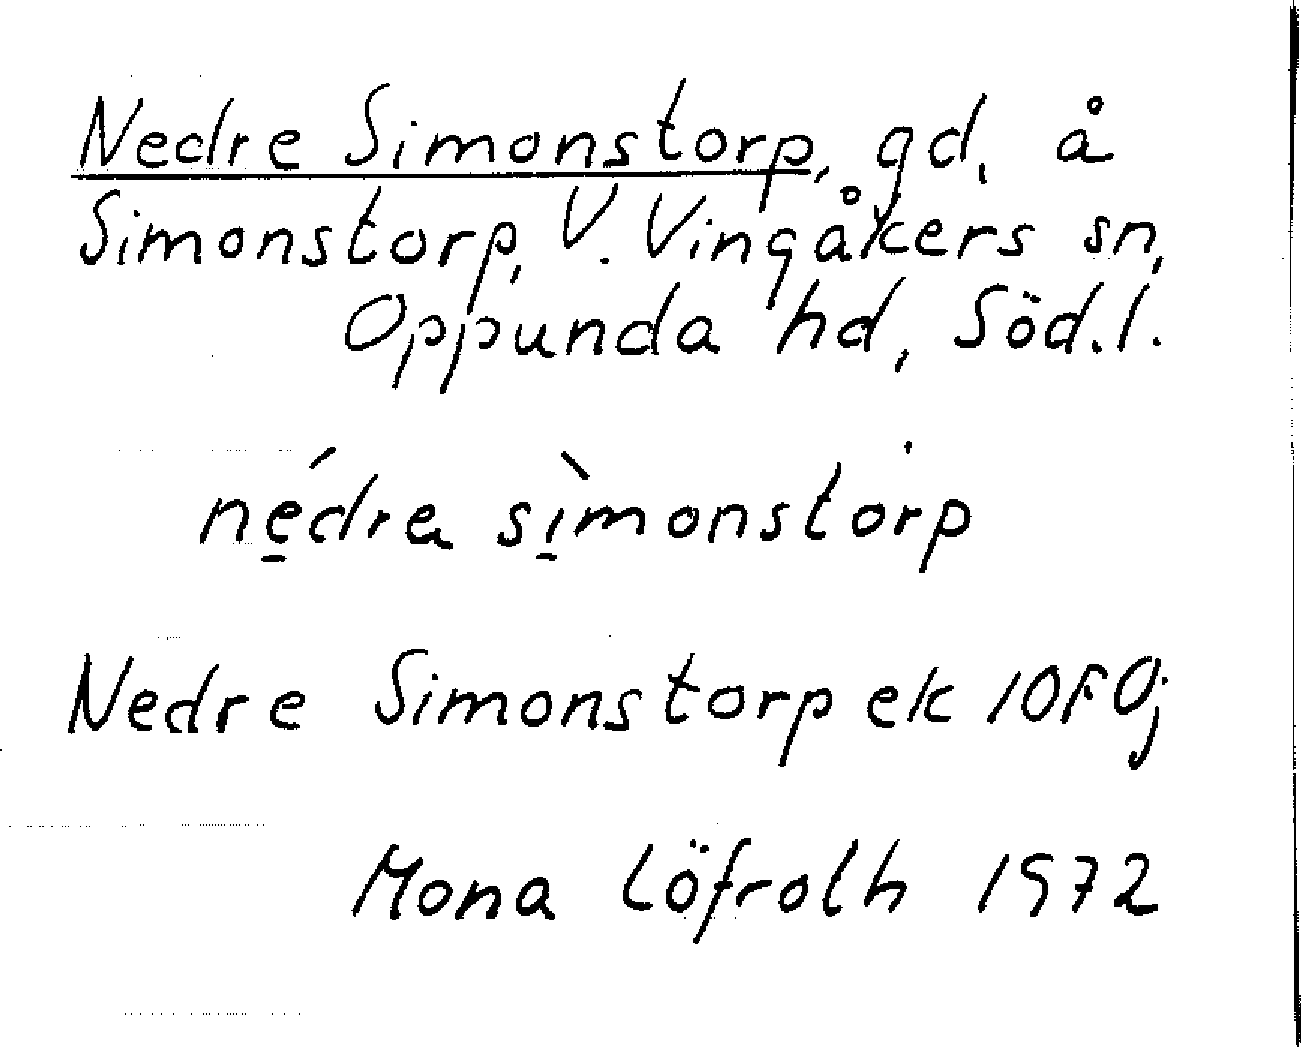 Nedre Simonstorp, gd, å
Simonstorp, V. Vingåkers sn,
Oppunda hd, Söd.l.
nẹ́dra sı̱̀monstȯrp
Nedre Simonstorp ek 10F0j
Mona Löfroth 1972